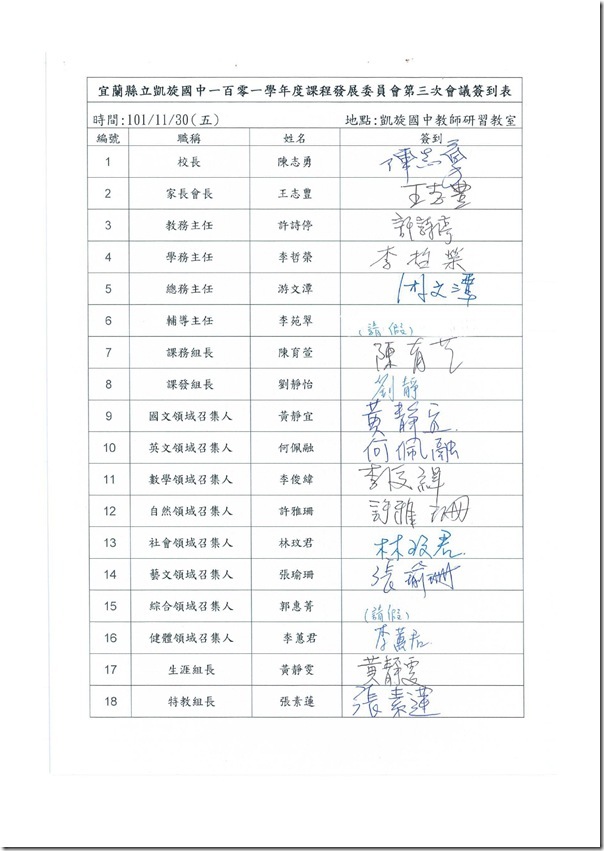 宜蘭縣立凱旋國中一百零一學年度課程發展委員會第三次會議簽到表
時間:101/11/30(五) 地點:凱旋國中教師研習教室
編號 職稱 姓名 簽到
1 校長 陳志勇 陳志勇
2 家長會長 王志豐 王志豐
3 教務主任 許詩停 許詩停
4 學務主任 李哲榮 李哲榮
5 總務主任 游文潭 游文潭
6 輔導主任 李苑翠 (請假)
7 課務組長 陳育萱 陳育萱
8 課發組長 劉靜怡 劉靜
9 國文領域召集人 黃靜宜 黃靜宜
10 英文領域召集人 何佩融 何佩融
11 數學領域召集人 李俊緯 李俊緯
12 自然領域召集人 許雅珊 許雅珊
13 社會領域召集人 林玟君 林玟君
14 藝文領域召集人 張瑜珊 張瑜珊
15 綜合領域召集人 郭惠菁 (請假)
16 健體領域召集人 李蕙君 李蕙君
17 生涯組長 黃靜雯 黃靜雯
18 特教組長 張素蓮 張素蓮